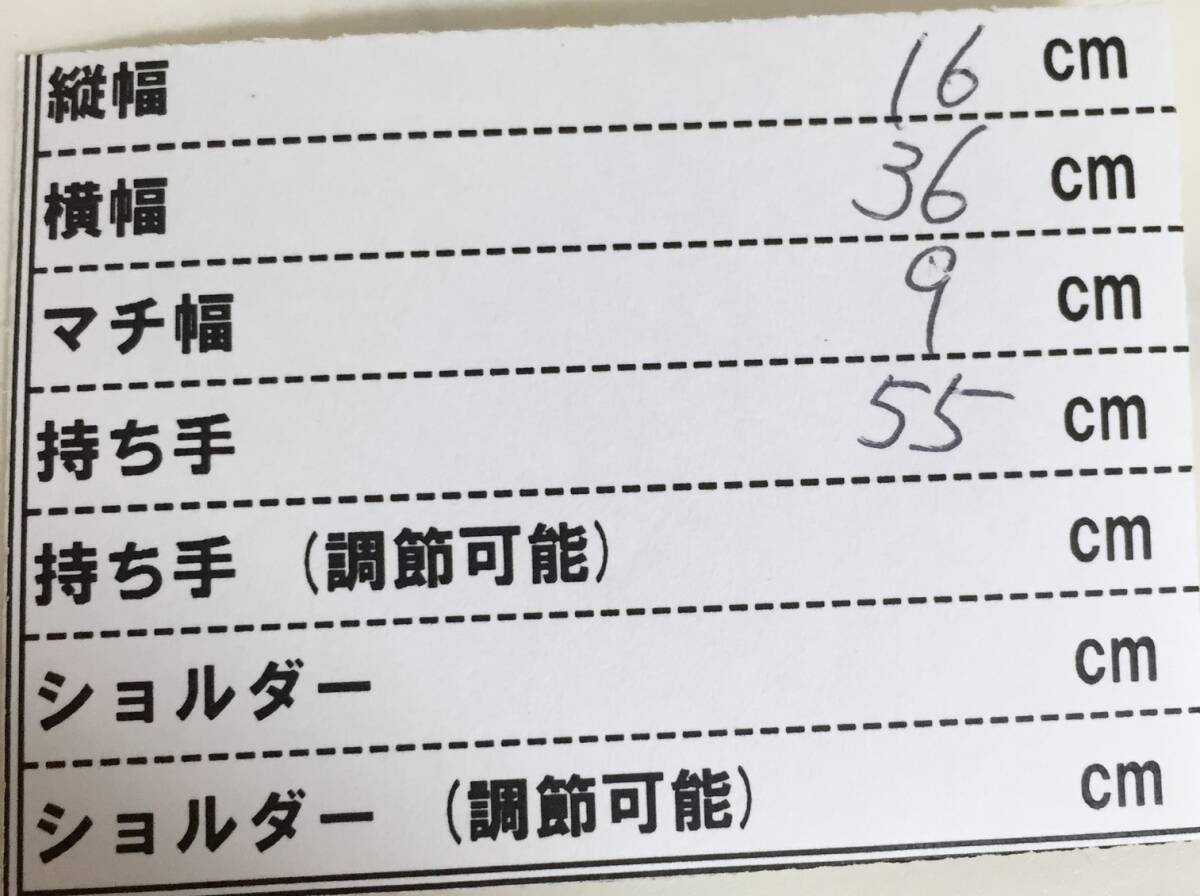 縦幅 16 cm
横幅 36 cm
マチ幅 9 cm
持ち手 55 cm
持ち手 (調節可能) cm
ショルダー cm
ショルダー (調節可能) cm